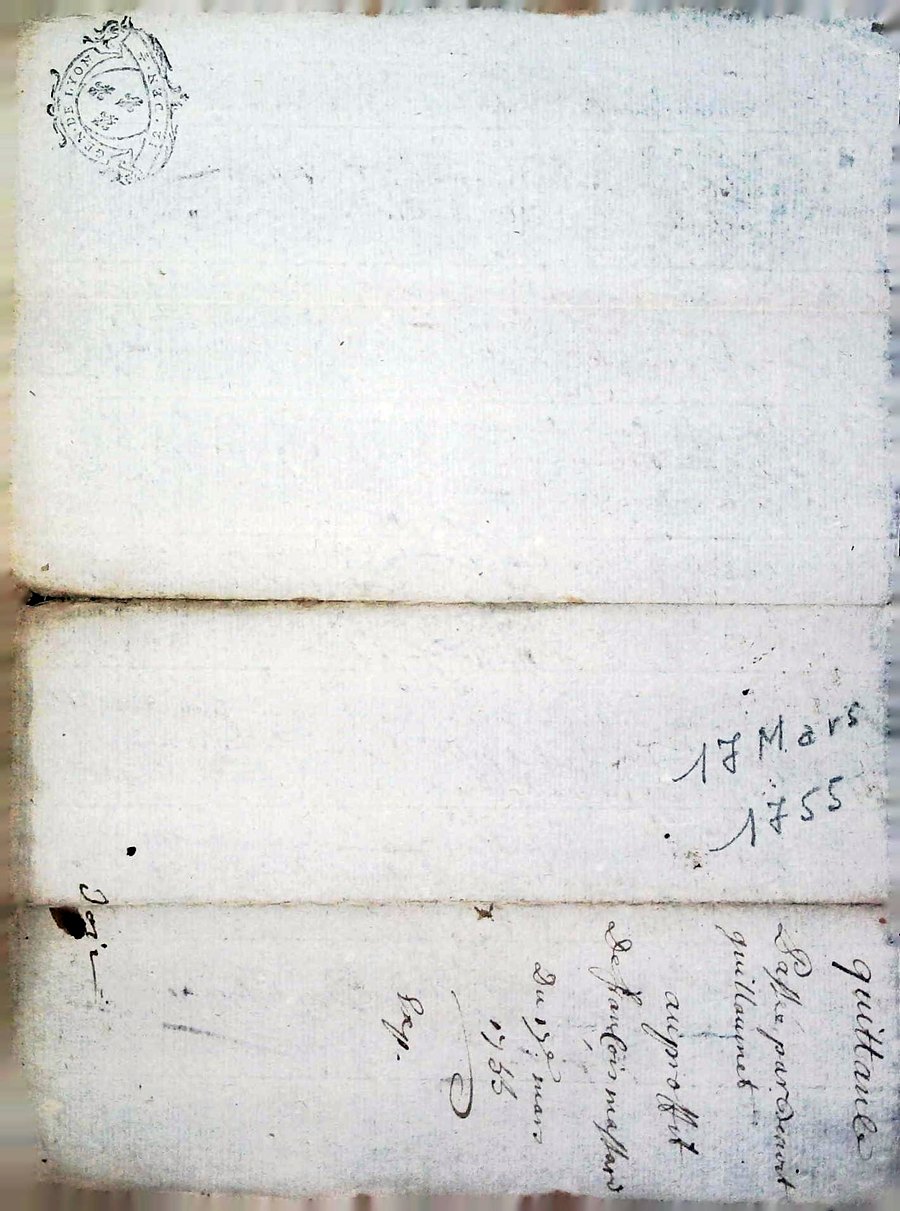 GEN. DE LYON
17 Mars
1755
quittance
Passée par benoit
guillaumet
au proffit
De francois mastard
Du 17e mars
1755
Exp.